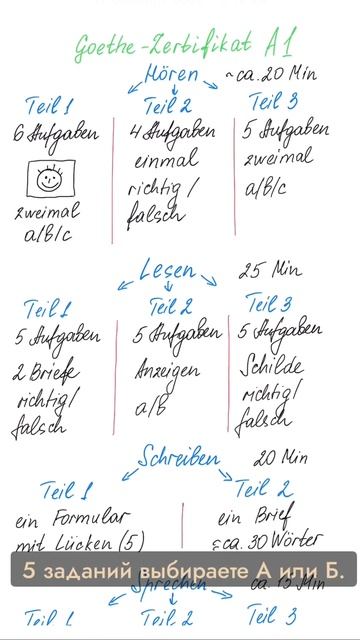 Goethe-Zertifikat A1
Hören ~ca. 20 Min
Teil 1
6 Aufgaben
zweimal
a/b/c
Teil 2
4 Aufgaben
einmal
richtig/
falsch
Teil 3
5 Aufgaben
zweimal
a/b/c
Lesen 25 Min
Teil 1
5 Aufgaben
2 Briefe
richtig/
falsch
Teil 2
5 Aufgaben
Anzeigen
a/b
Teil 3
5 Aufgaben
Schilde
richtig/
falsch
Schreiben 20 Min
Teil 1
ein Formular
mit Lücken (5)
Teil 2
ein Brief
ca. 30 Wörter
5 заданий выбираете А или Б.
Sprechen ca. 15 Min
Teil 1 Teil 2 Teil 3